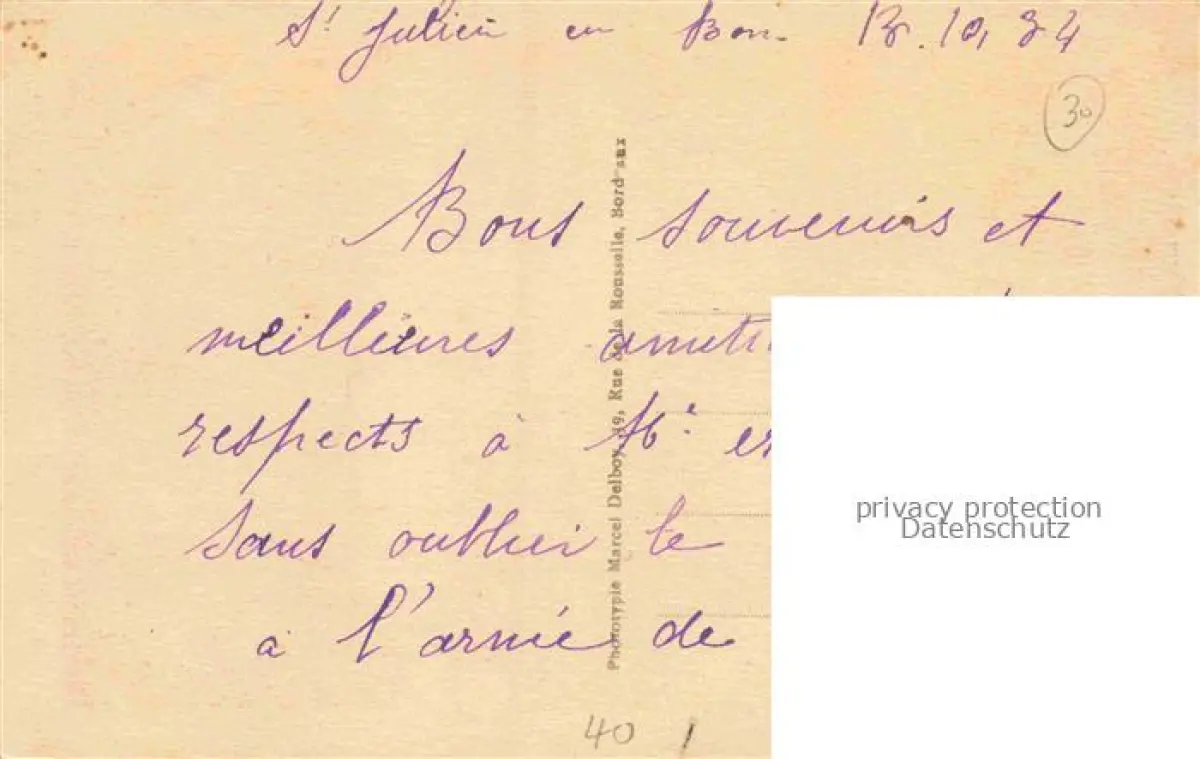 St Julien en Born 12.10,34
30
Bons souvenirs et
meilleures
respects à Me et
sans oublier le
à l'armée de
Phototypie Marcel Delboy, 39, Rue de la Rousselle, Bordeaux
privacy protection
Datenschutz
40